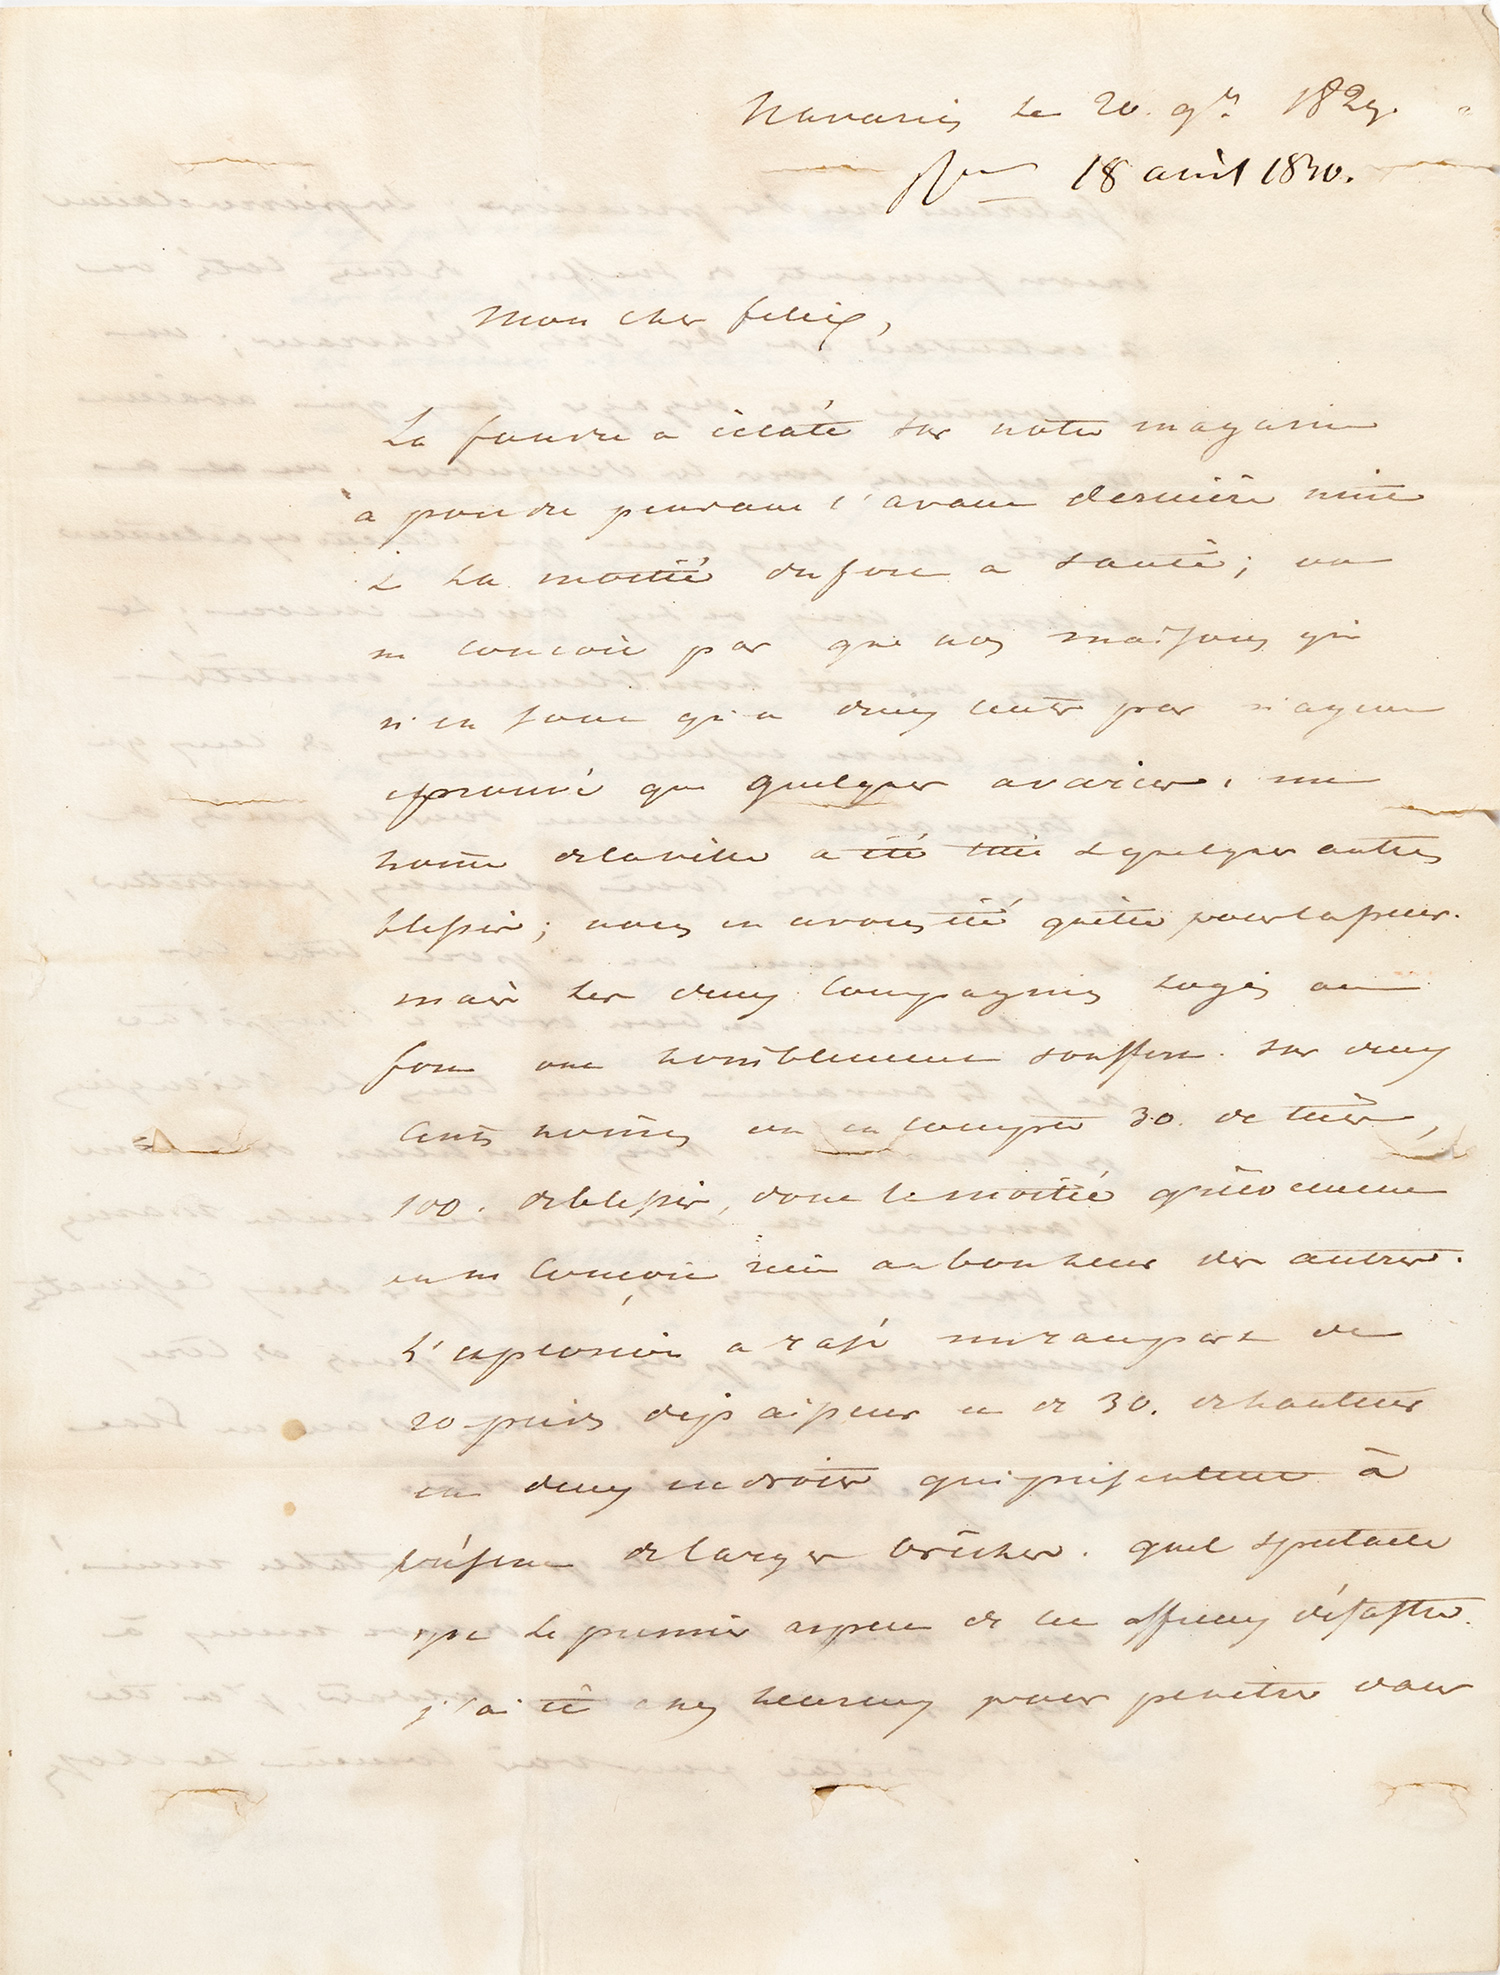 Navarin le 20. 9bre. 1829.
Rxx 18 avril 1830.
Mon cher felix,
La foudre a éclaté sur notre magasin
a poudre pendant l'avant dernière nuit
& la moitié du fort a sauté; on
ne concoit pas que nos maisons qui
n'en sont qu'a deux cents pas n'ayent
eprouvé que quelques avaries. un
home de la ville a été tué & quelques autres
blessés; nous en avons été quitte pour la peur.
mais les deux compagnies logées au
fort ont horriblement souffert. sur deux
cents homes on en compte 30. de tués,
100. de blessés, dont la moitié grièvement
on ne concoit rien au bonheur des autres.
L'explosion a rasé un rempart de
20 pieds d'epaisseur et de 30. de hauteur
en deux endroits qui présentent à
présent de larges brêches. quel spectacle
que le premier aspect de cet affreux désastre.
j'ai été assez heureux pour penetrer dans